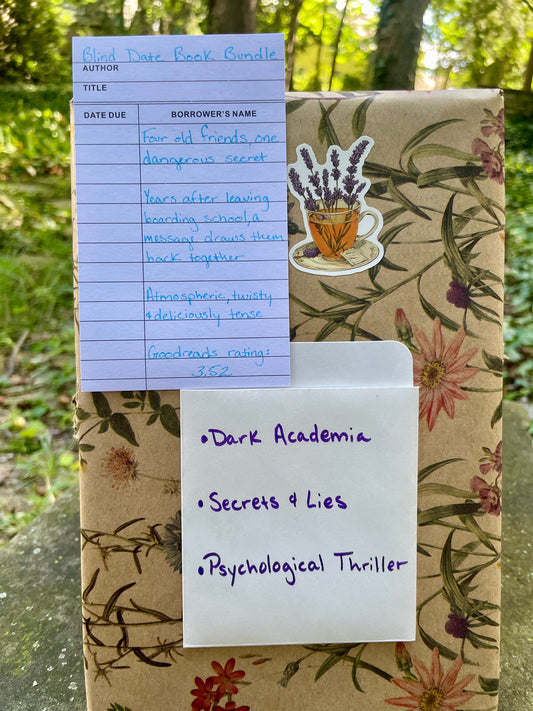 Blind Date Book Bundle
AUTHOR
TITLE
DATE DUE BORROWER'S NAME
Four old friends, one
dangerous secret
Years after leaving
boarding school, a
message draws them
back together
Atmospheric, twisty
& deliciously tense
Goodreads rating:
3.52
•Dark Academia
•Secrets & Lies
•Psychological Thriller